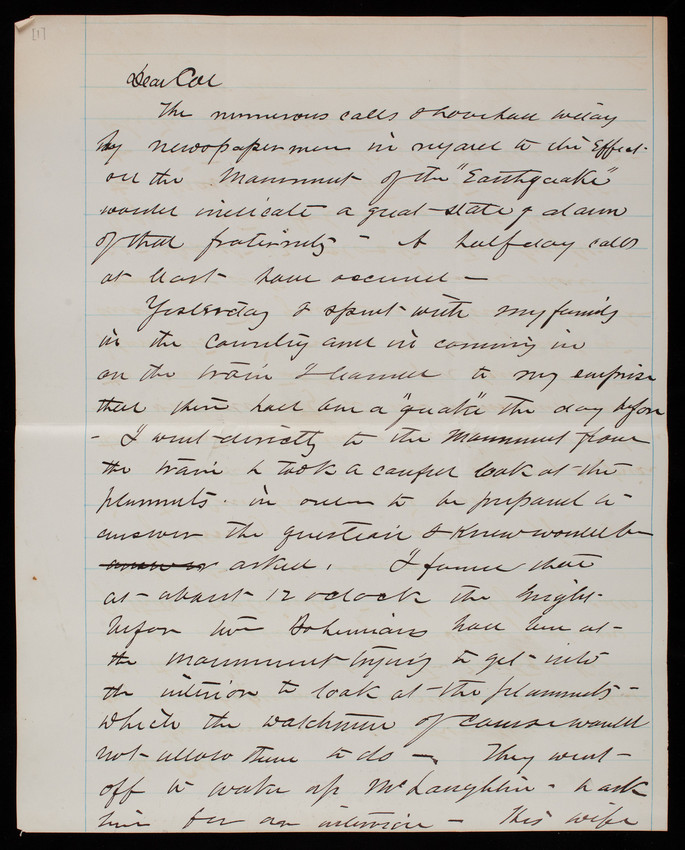 [1]
Dear Col
The numerous calls I have had today
by newspaper men in regard to the Effect
on the Monument of the "Earthquake"
would indicate a great state of alarm
of that fraternity - A half doz calls
at least have occurred -
Yesterday I spent with my family
in the Country and in coming in
on the train I learned to my surprise
that there had been a "quake" the day before
- I went directly to the Monument from
the train & took a careful look at the
plummets in order to be prepared to
answer the question I knew would be
asked. I found that
at about 12 oclock the night
before two Bohemians had been at
the monument trying to get into
the interior to look at the plummets -
which the watchman of course would
not allow them to do - They went
off to wake up McLaughlin - to ask
him for an interview - His wife